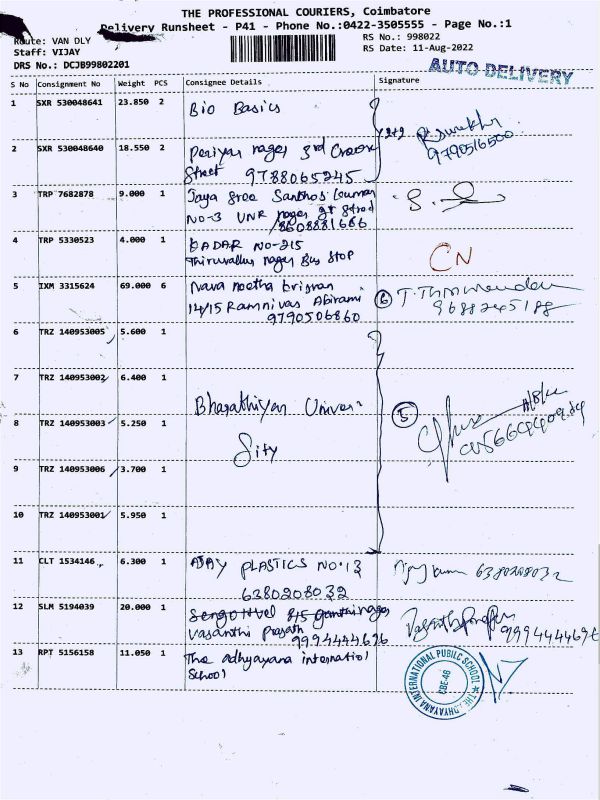 THE PROFESSIONAL COURIERS, Coimbatore
Delivery Runsheet - P41 - Phone No.:0422-3505555 - Page No.:1
Route: VAN DLY
RS No.: 998022
Staff: VIJAY
RS Date: 11-Aug-2022
DRS No.: DCJB99802201
AUTO DELIVERY
S No Consignment No Weight PCS Consignee Details Signature
1 SXR 530048641 23.850 2 Bio Basics
2 SXR 530048640 18.550 2 Periyar nager 3rd Cross
Street 9788065245
2+2
9790516500
3 TRP 7682878 9.000 1 Jaya Sree Santhos kumar
NO-3 UNR nager
8608881686
4 TRP 5330523 4.000 1 DADAR NO-215
Thiruvallur nager Bus Stop
CN
5 IXM 3315624 69.000 6 Nava neetha krisnan
14/15 Ramnivas Abirami
9790506860
6
6 TRZ 140953005 5.600 1
7 TRZ 140953002 6.400 1
Bharathiyar Univer
8 TRZ 140953003 5.250 1
Sity
5
9 TRZ 140953006 3.700 1
10 TRZ 140953001 5.950 1
11 CLT 1534146 6.300 1 AJAY PLASTICS NO:13
6380208032
6380208032
12 SLM 5194039 20.000 1
Vasanthi Prasath
9994444696
9994444696
13 RPT 5156158 11.050 1 The adhyayana internatiol
School
THE ADHYAYANA INTERNATIONAL PUBLIC SCHOOL
CBE-46